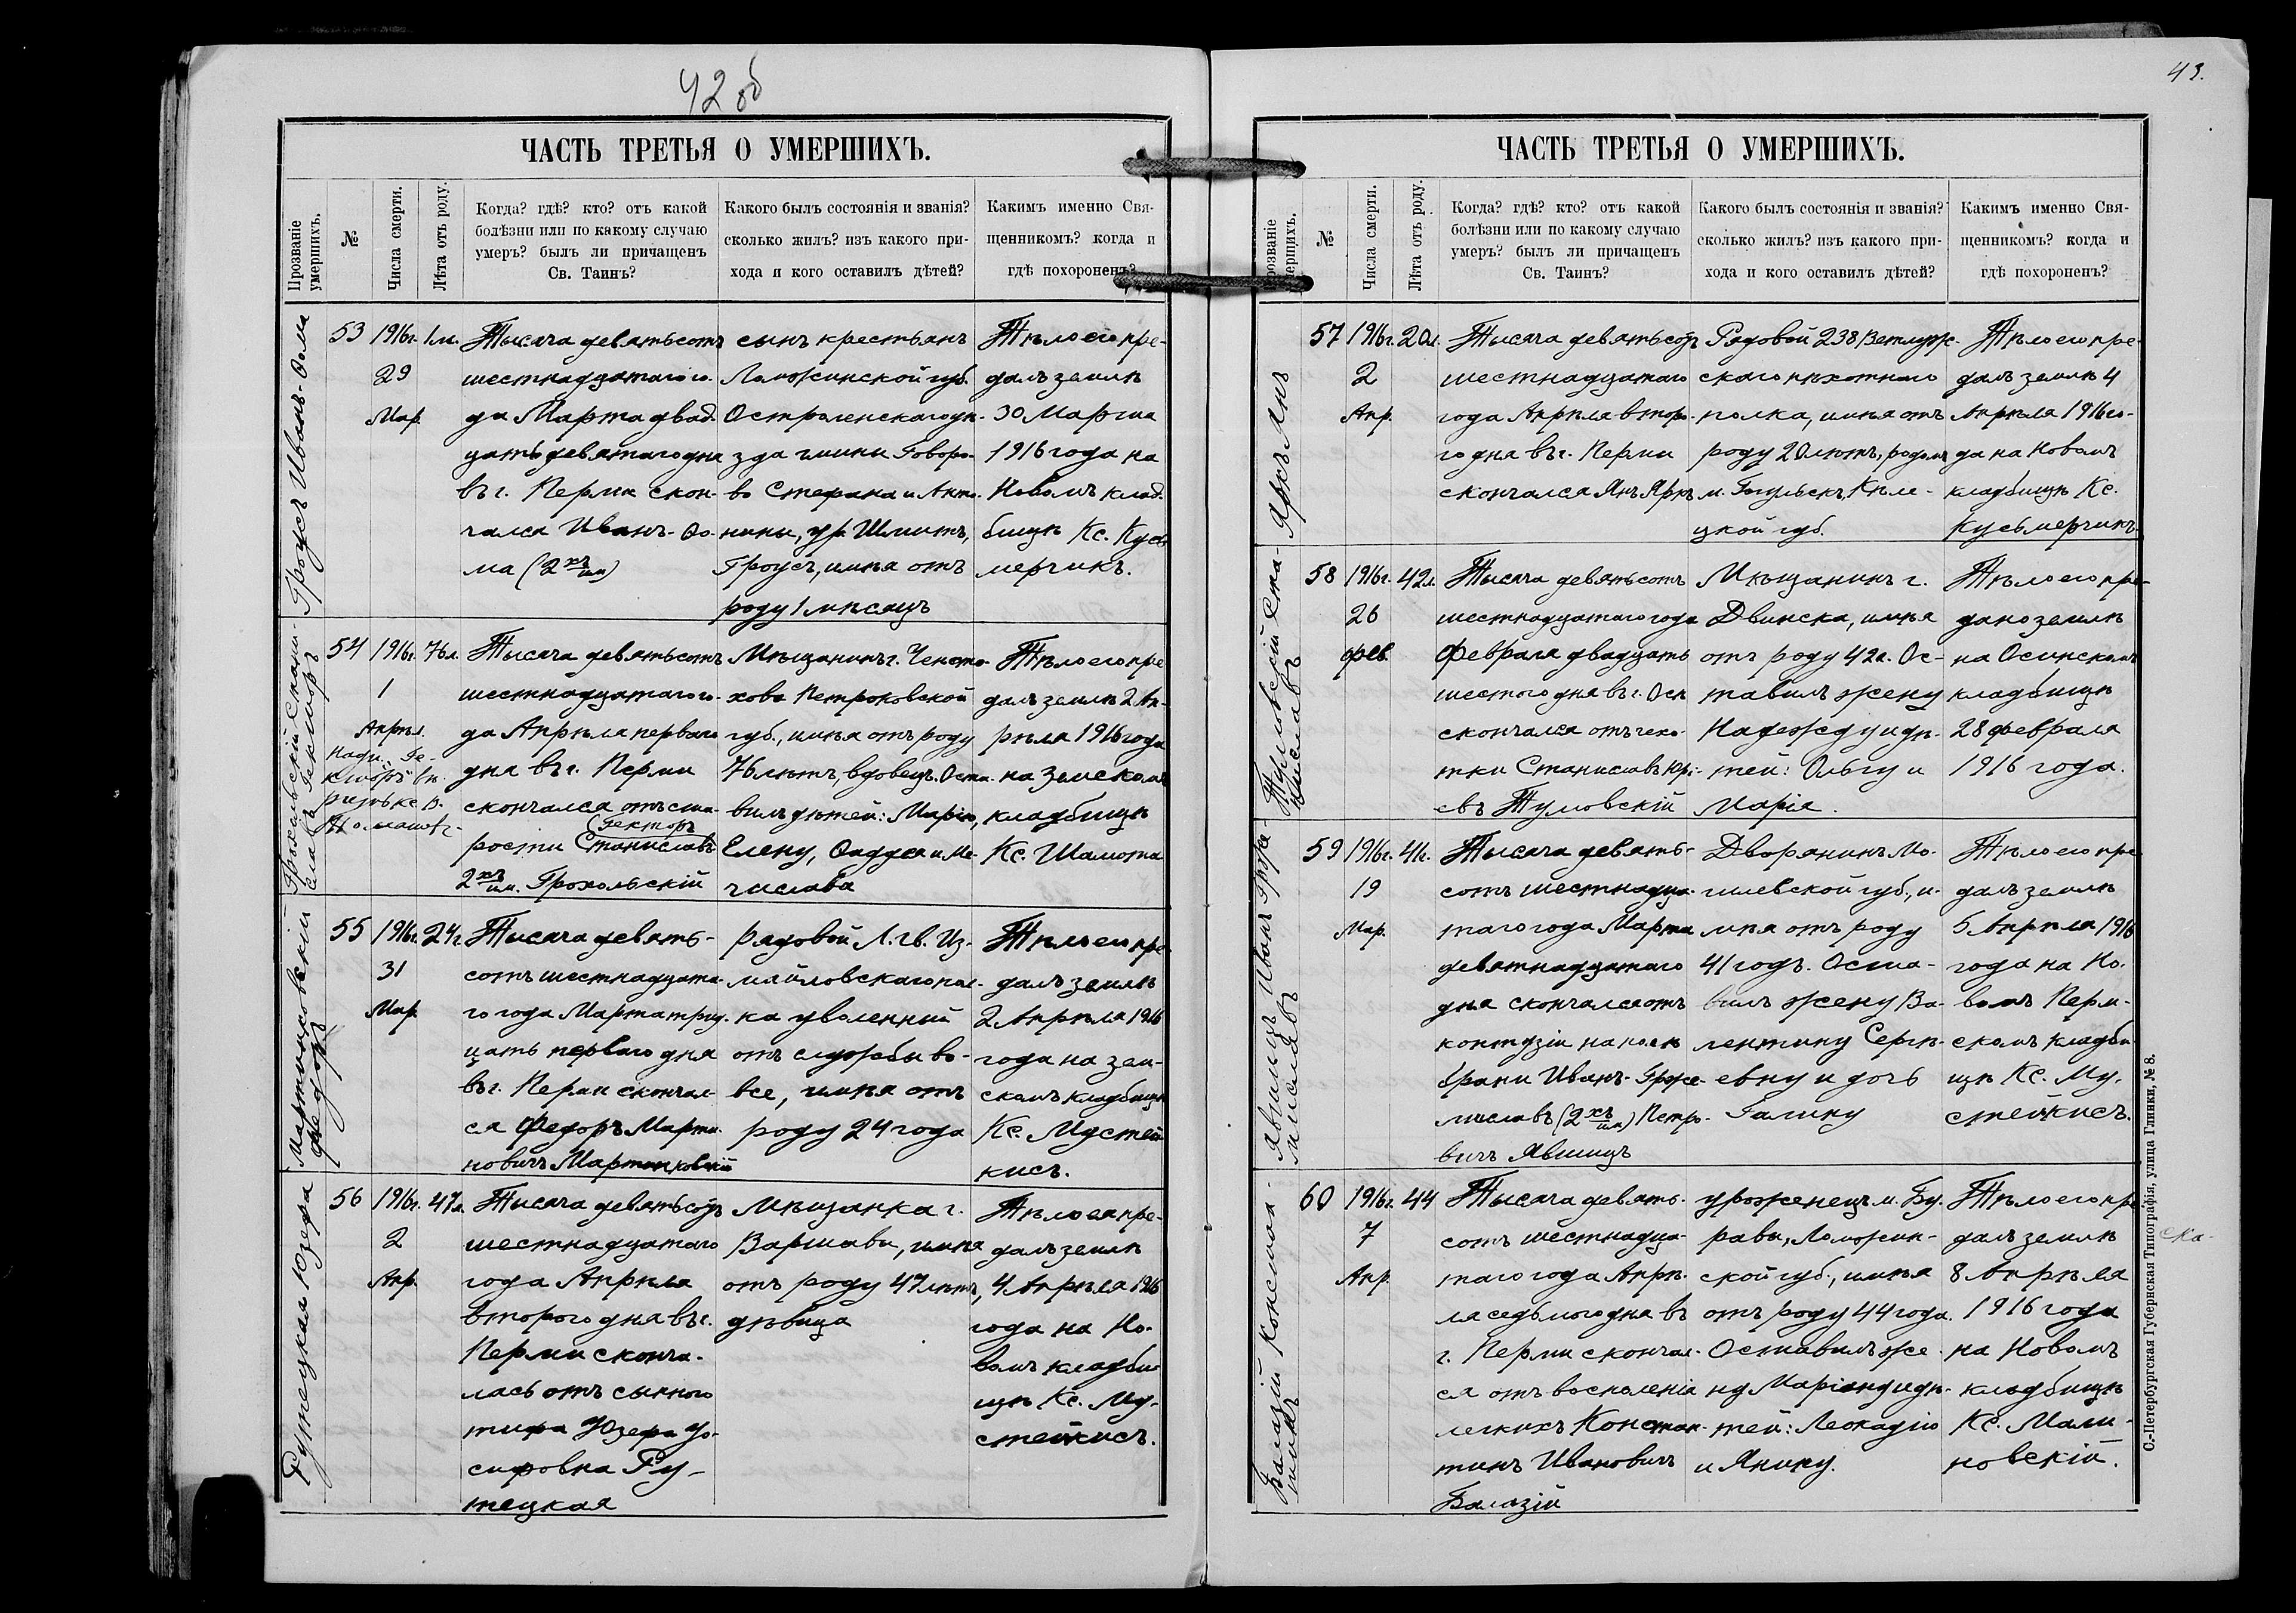 42 об
ЧАСТЬ ТРЕТЬЯ О УМЕРШИХЪ.
Прозваніе умершихъ.
№
Числа смерти.
Лѣта отъ роду.
Когда? гдѣ? кто? отъ какой
болѣзни или по какому случаю
умеръ? былъ ли причащенъ
Св. Таинъ?
Какого былъ состоянія и званія?
сколько жилъ? изъ какого при-
хода и кого оставилъ дѣтей?
Какимъ именно Свя-
щенникомъ? когда и
гдѣ похороненъ?
Гроусъ Иванъ-Ѳома
53
1916г.
29
Мар.
1м.
Тысяча девятьсотъ
шестнадцатаго го-
да Марта двад-
цать девятаго дня
въ г. Перми скон-
чался Иванъ-Ѳо-
ма (2хъ им)
сынъ крестьянъ
Ломжинской губ.
Остроленскаго уѣ-
зда гмины Говоро-
во Стефана и Анто-
нины, ур. Шмитъ,
Гроусъ, имѣя отъ
роду 1 мѣсяцъ
Тѣло его пре-
далъ землѣ
30 Марта
1916 года на
Новомъ клад-
бищѣ Кс. Кусь
мерчикъ.
Грохольскій Стани-
славъ Гекторъ
54
1916г.
1
Апрѣл.
76л.
Тысяча девятьсотъ
шестнадцатаго го-
да Апрѣля перваго
дня въ г. Перми
скончался отъ ста-
рости Станиславъ
(Гекторъ
2хъ им. Грохольскій
Мѣщанинъ г. Ченсто-
хова Петроковской
губ., имѣя отъ роду
76 лѣтъ, вдовецъ. Оста-
вилъ дѣтей: Марію,
Елену, Ѳаддея и Ме-
числава
Тѣло его пре-
далъ землѣ 2 Ап-
рѣля 1916 года
на Земскомъ
кладбищѣ
Кс. Шамота
Мартинковскій
Федоръ
55
1916г.
31
Мар.
24г.
Тысяча девять-
сотъ шестнадцата-
го года Марта трид-
цать перваго дня
въ г. Перми скончал-
ся Федоръ Марти-
новичъ Мартинковскій
рядовой Л. гв. Из-
майловскаго пол-
ка уволенный
отъ службы во-
все, имѣя отъ
роду 24 года
Тѣло его пре-
далъ землѣ
2 Апрѣля 1916
года на зем-
скомъ кладбищѣ
Кс. Мустей
кисъ.
Рутецкая Юзефа
56
1916г.
2
Апр.
47л.
Тысяча девятьсотъ
шестнадцатаго
года Апрѣля
второго дня въ г.
Перми сконча-
лась отъ сыпного
тифа Юзефа Іо-
сифовна Ру-
тецкая
Мѣщанка г.
Варшавы, имѣя
отъ роду 47 лѣтъ,
дѣвица
Тѣло ея пре-
далъ землѣ
4 Апрѣля 1916
года на Но-
вомъ кладби-
щѣ Кс. Му-
стейкисъ.
43.
ЧАСТЬ ТРЕТЬЯ О УМЕРШИХЪ.
Прозваніе умершихъ.
№
Числа смерти.
Лѣта отъ роду.
Когда? гдѣ? кто? отъ какой
болѣзни или по какому случаю
умеръ? былъ ли причащенъ
Св. Таинъ?
Какого былъ состоянія и званія?
сколько жилъ? изъ какого при-
хода и кого оставилъ дѣтей?
Какимъ именно Свя-
щенникомъ? когда и
гдѣ похороненъ?
Яркъ Янъ
57
1916г.
2
Апр.
20л.
Тысяча девятьсотъ
шестнадцатаго
года Апрѣля второ-
го дня въ г. Перми
скончался Янъ Яркъ
Рядовой 238 Ветлуж-
скаго пѣхотнаго
полка, имѣя отъ
роду 20 лѣтъ, родомъ
цкой губ.
Тѣло его пре-
далъ землѣ 4
Апрѣля 1916 го-
да на Новомъ
кладбищѣ Кс.
Кусьмерчикъ.
Тумовскій Ста-
ниславъ
58
1916г.
26
фев.
42л.
Тысяча девятьсотъ
шестнадцатаго года
Февраля двадцать
шестого дня въ г. Осѣ
скончался отъ чехо-
тки Станиславъ Юрі-
евъ Тумовскій
Мѣщанинъ г.
Двинска, имѣя
отъ роду 42л. Ос-
тавилъ жену
Надежду и дѣ-
тей: Ольгу и
Марія.
Тѣло его пре-
дано землѣ
на Осинскомъ
кладбищѣ
28 февраля
1916 года.
59
1916г.
19
Мар.
41г.
Тысяча девять-
сотъ шестнадца-
таго года Марта
девятнадцатаго
дня скончался отъ
контузіи на полѣ
брани Иванъ-Грже-
миславъ (2хъ им) Петро-
вичъ Явшицъ
Дворянинъ Мо-
гилевской губ., и-
мѣя отъ роду
41 годъ. Оста-
вилъ жену Ва-
лентину Сергѣ-
евну и дочь
Галину
Тѣло его пре-
далъ землѣ
5 Апрѣля 1916
года на Но-
вомъ Перм-
скомъ кладби-
щѣ Кс. Му-
стейкисъ.
60
1916г.
7
Апр.
44
Тысяча девять-
сотъ шестнадца-
таго года Апрѣ-
ля седьмого дня въ
г. Перми скончал-
ся отъ воспаленія
легкихъ Констан-
тинъ Ивановичъ
Балазій
уроженецъ м. Бу-
равы, Ломжин-
ской губ., имѣя
отъ роду 44 года.
Оставилъ же-
ну Маріанну и дѣ-
тей: Леокадію
и Янину.
Тѣло его пре-
далъ землѣ
8 Апрѣля
1916 года
на Новомъ
кладбищѣ
Кс. Мали-
новскій.
С.-Петербургская Губернская Типографія, улица Глинки, № 8.